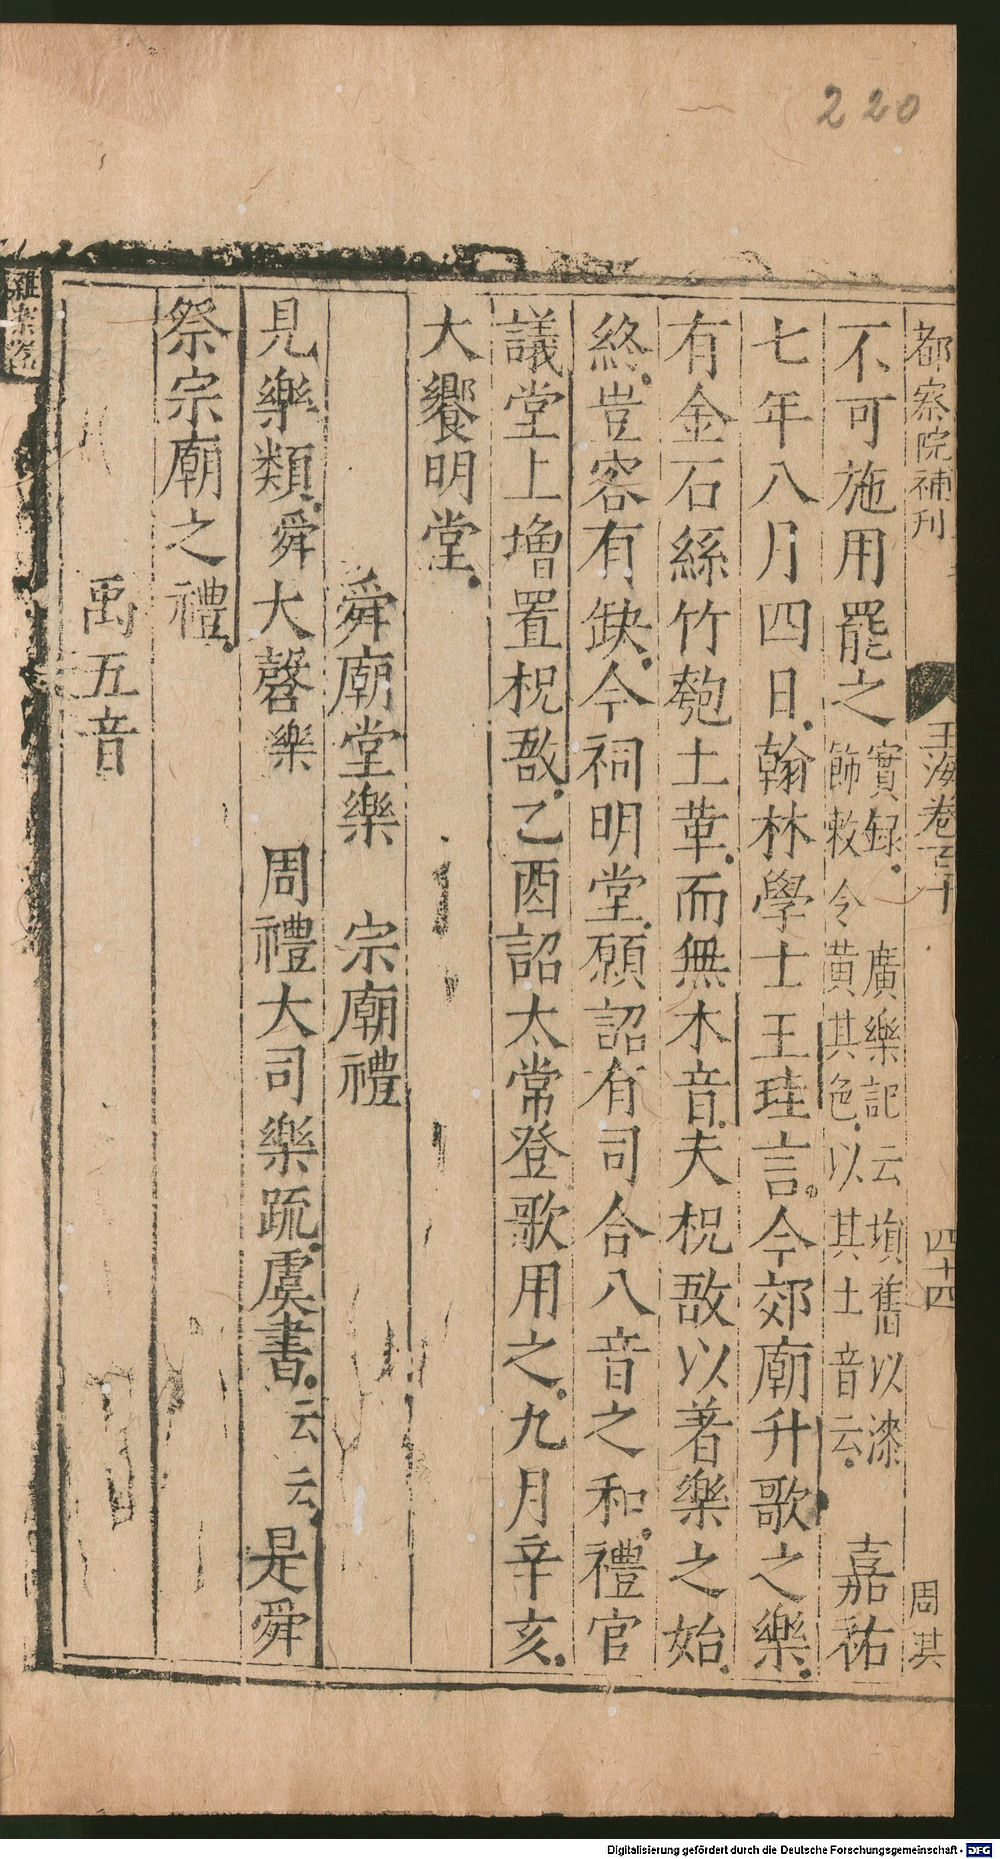 220
都察院補刊 玉海卷百十 四十四 周淇
不可施用罷之 實録廣樂記云塤舊以漆 飾敕令黄其色以其土音云 嘉祐
七年八月四日翰林學士王珪言今郊廟升歌之樂
有金石絲竹匏土革而無木音夫柷敔以著樂之始
終豈容有缺今祠明堂願詔有司合八音之和禮官
議堂上增置柷敔乙酉詔太常登歌用之九月辛亥
大饗明堂
舜廟堂樂 宗廟禮
見樂類舜大磬樂 周禮大司樂疏虞書云云是舜
祭宗廟之禮
禹五音
雜樂卷
Digitalisierung gefördert durch die Deutsche Forschungsgemeinschaft - DFG